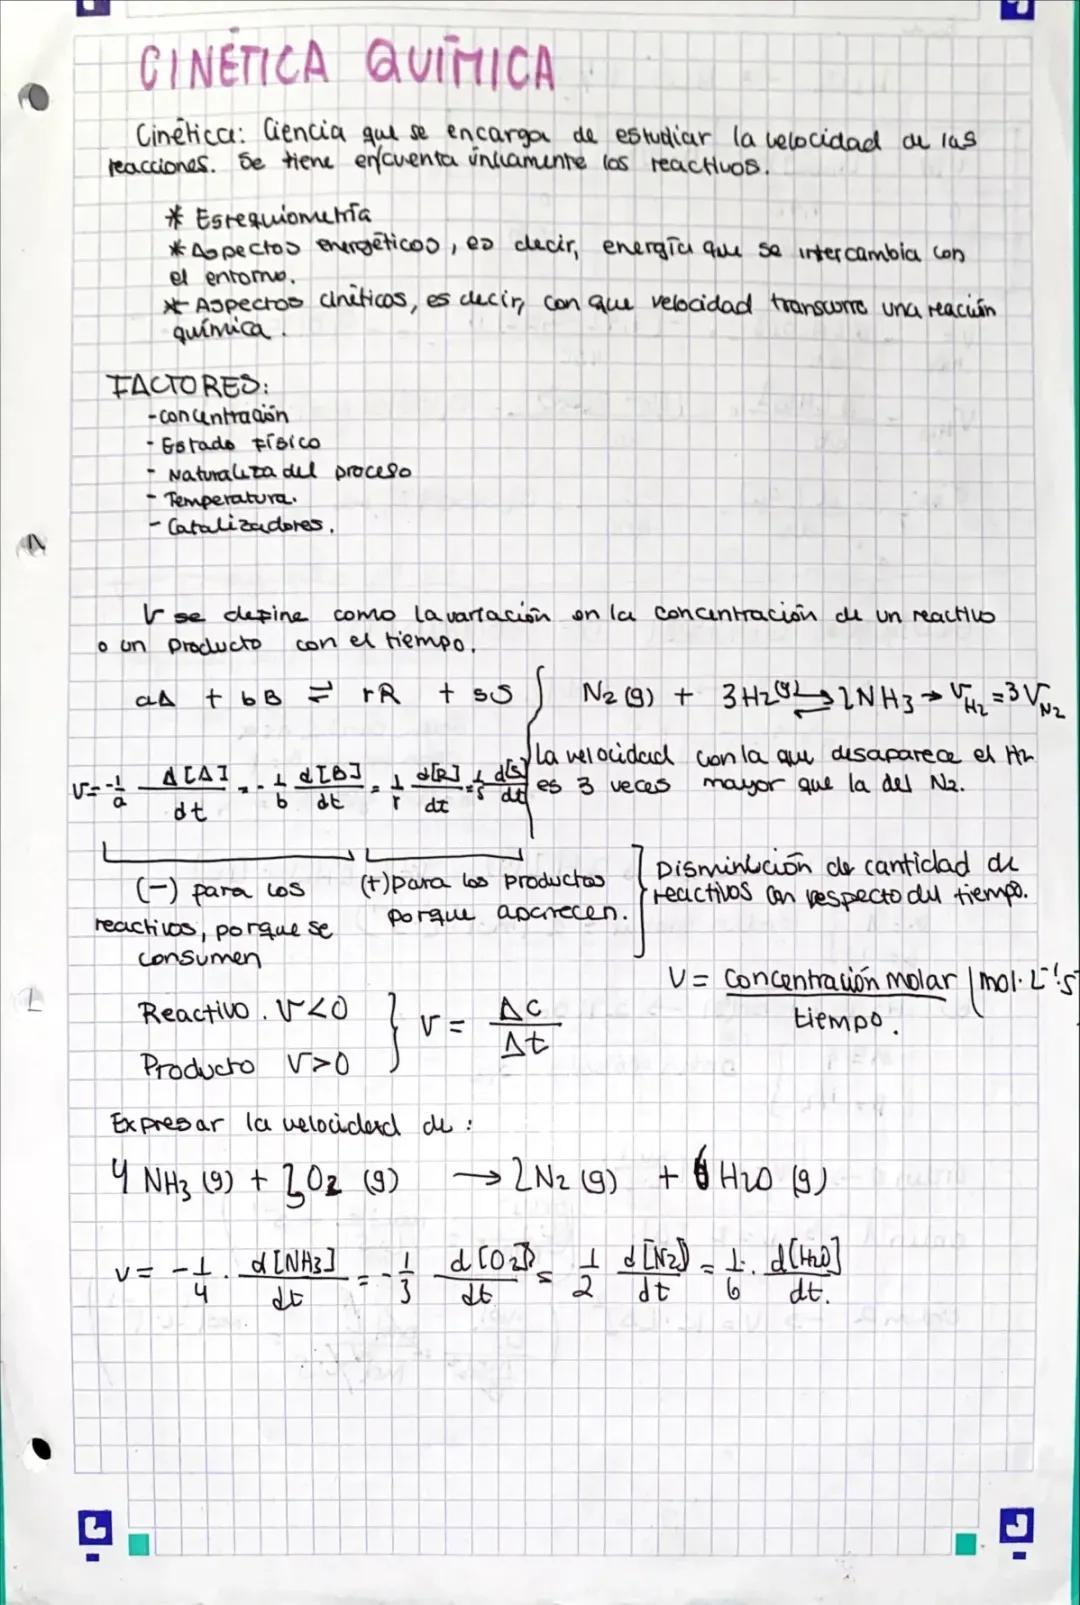 CINÉTICA QUÍMICA
Cinética: Ciencia que se encarga de estudiar la velocidad de las
reacciones. Se tiene en cuenta únicamente los reactivos.
* Estequiometría
* Aspectos energéticos, es decir, energía que se intercambia con
el entorno.
* Aspectos cinéticos, es decir, con que velocidad transcurre una reación
química.
FACTORES:
- concentración
- Estado Físico
- Naturaleza del proceso
- Temperatura.
- Catalizadores.
V se define como la variación en la concentración de un reactivo
o un producto con el tiempo.
aA + bB ⇌ rR + sS
N2 (g) + 3H2(g) ⇌ 2NH3 → VH2 = 3VN2
La velocidad con la que desaparece el H2
es 3 veces mayor que la del N2.
V = -1/a Δ[A]/dt = -1/b d[B]/dt = 1/r d[R]/dt = 1/s d[S]/dt
(-) para los
reactivos, porque se
consumen
(+) para los productos
porque aparecen.
Disminución de cantidad de
reactivos con respecto del tiempo.
V = Concentración molar / tiempo. (mol·L⁻¹·s⁻
Reactivo. V<0
Producto V>0
V = ΔC/Δt
Expresar la velocidad de:
4 NH3 (g) + 3O2 (g) → 2N2 (g) + 6H2O (g)
V = -1/4 · d[NH3]/dt = -1/3 d[O2]/dt = 1/2 d[N2]/dt = 1/6 · d[H2O]/dt.